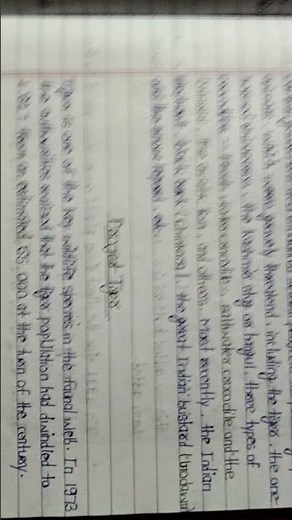 animals which were gravely threatened, including the tiger, the one
horned rhinoceros, the kashmir stag or hangul, three types of
crocodiles - fresh water crocodile, saltwater crocodile and the
the asiatic lion, and others. Most recently, the Indian
elephant, black buck (chinkara), the great Indian bustard (Godawan)
and the snow leopard etc.
Project Tiger
Tiger is one of the key wildlife species in the faunal web. In 1973
the authorities realised that the tiger population had dwindled to
from an estimated 55,000 at the turn of the century.